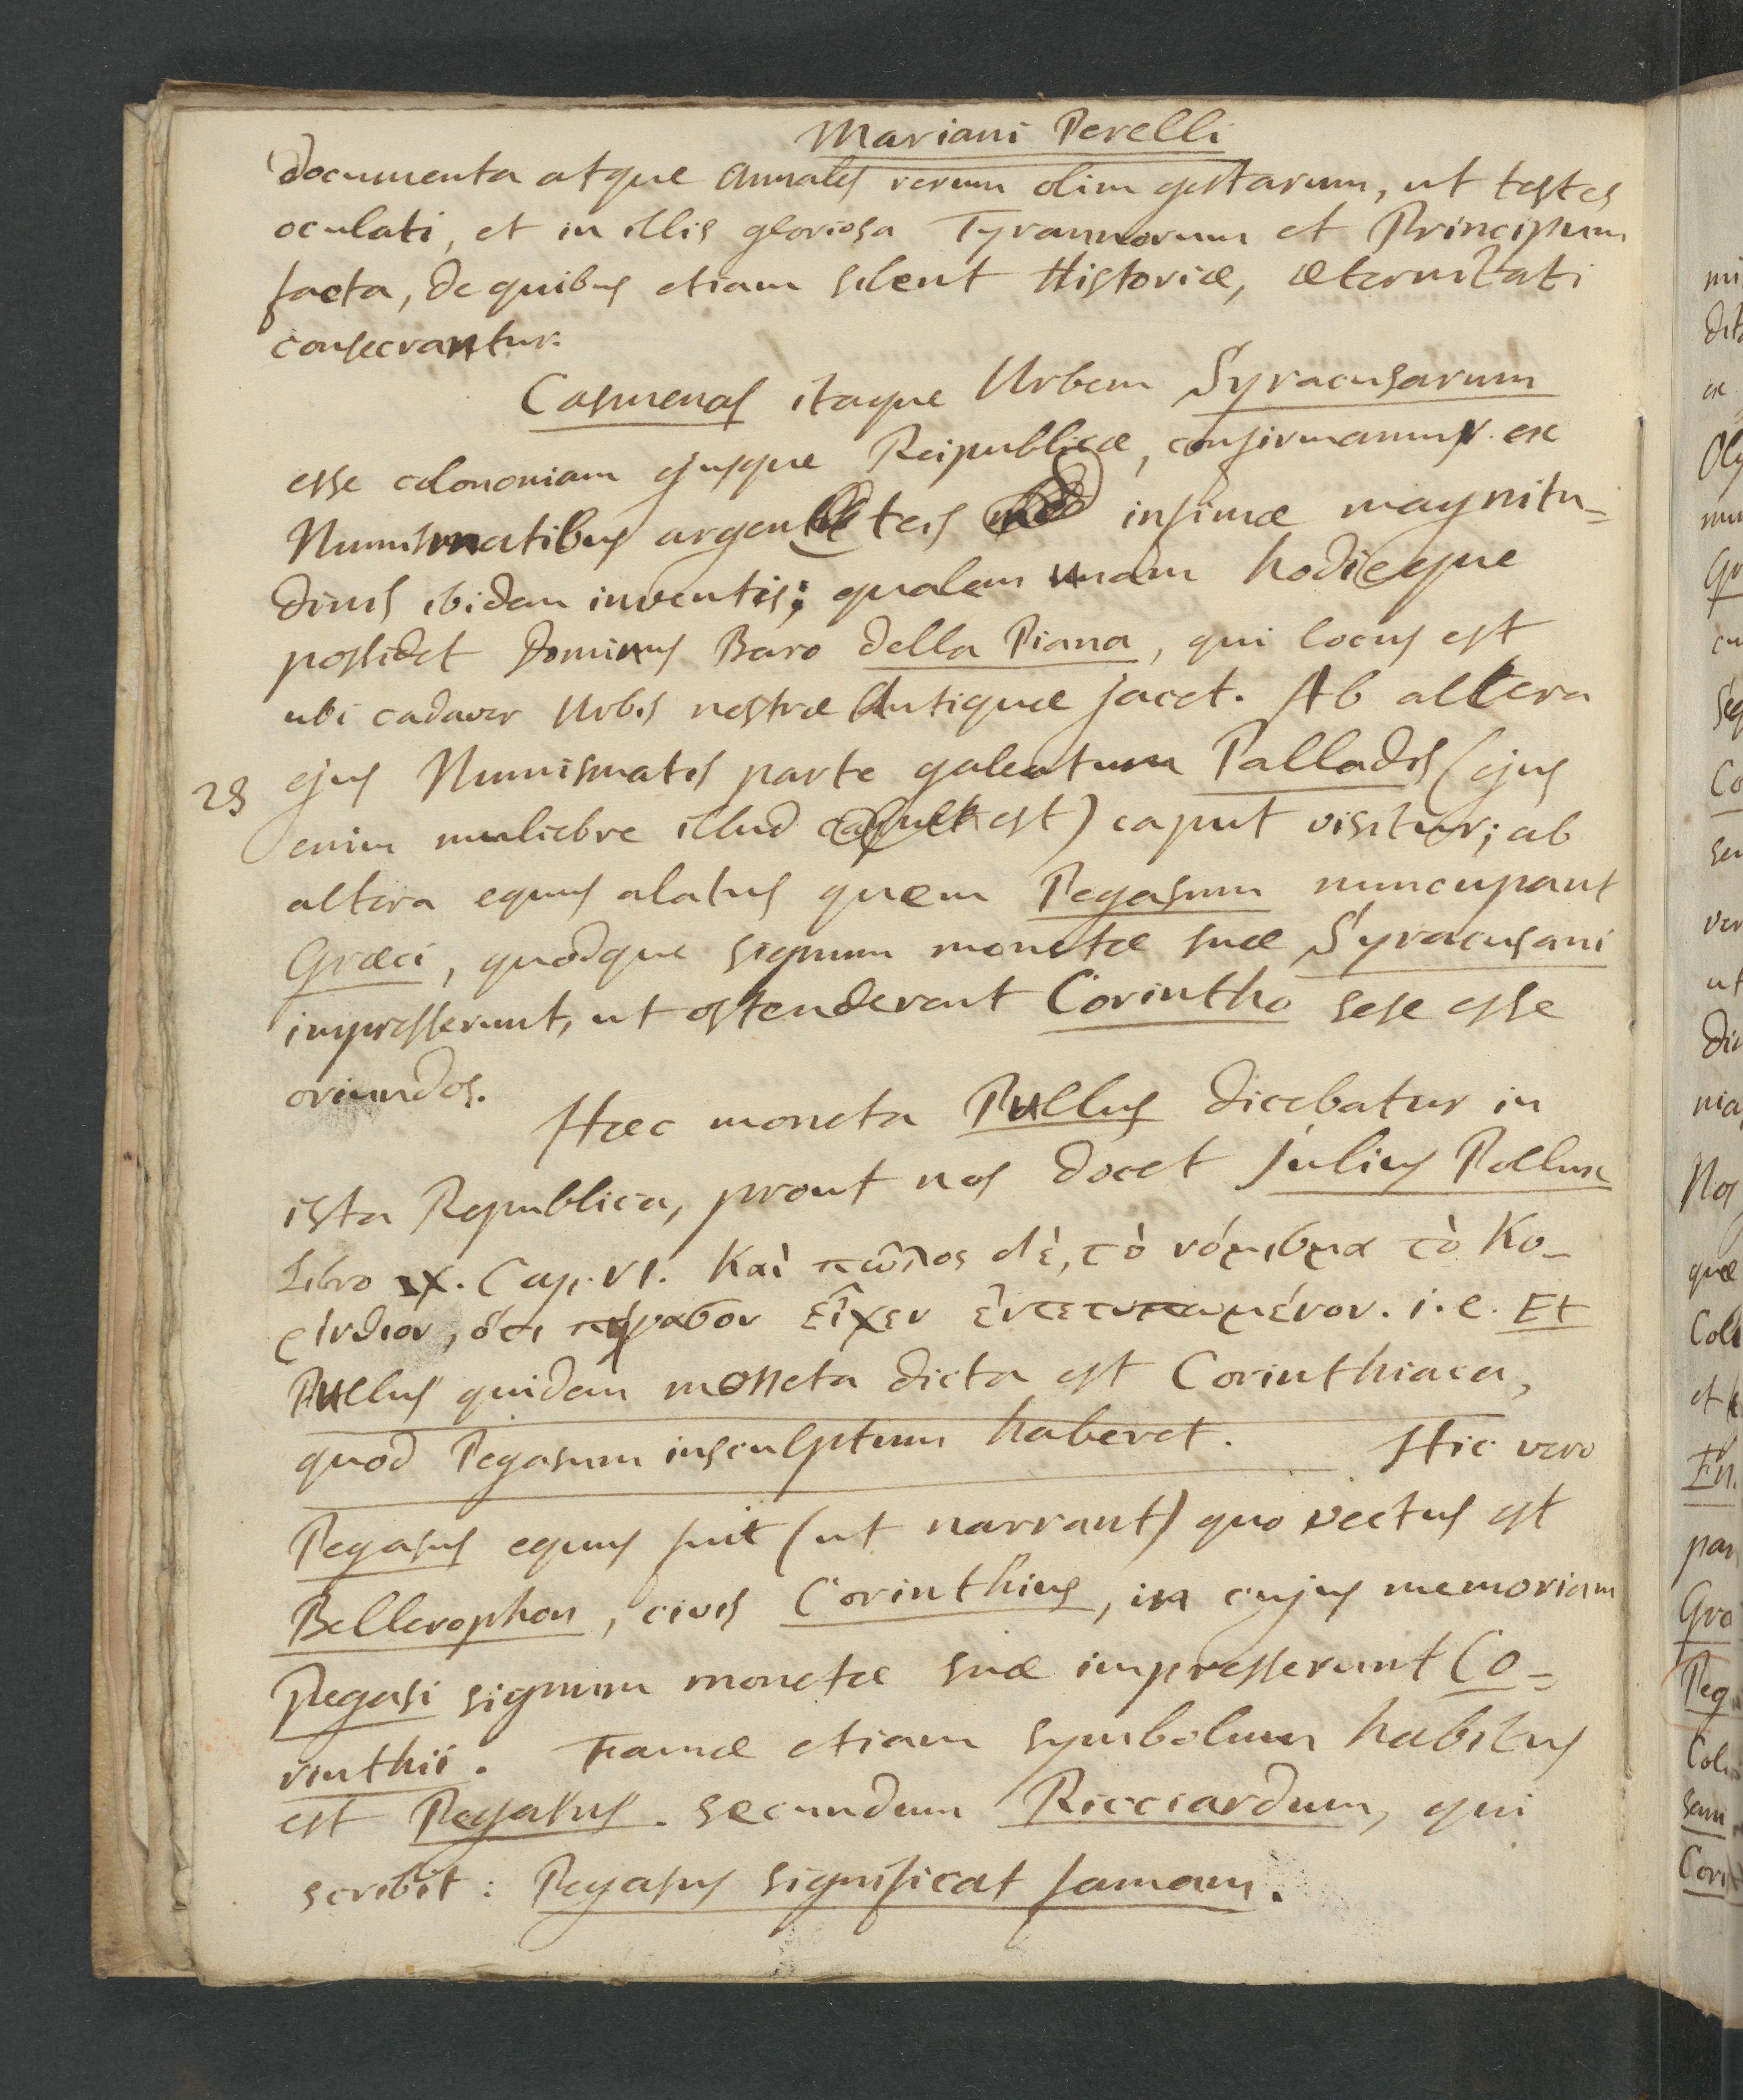 Mariani Perelli
documenta atque Annales rerum olim gestarum, ut testes
oculati, et in illis gloriosa Tyrannorum et Principum
facta, de quibus etiam silent Historiæ, æternitati
consecrantur.
Casmenas itaque Urbem Syracusarum
esse colononiam ejusque Reipublicæ, confirmamus ex
Numismatibus argenteis infimæ magnitu-
dinis ibidem inventis; qualem unam hodieque
possidet Dominus Baro della Piana, qui locus est
ubi cadaver Urbis nostræ Antiquæ jacet. Ab altera
28 ejus Numismatis parte galeatum Palladis (ejus
enim muliebre illud est) caput visitur; ab
altera equus alatus quem Pegasum nuncupant
Græci, quodque signum monetæ suæ Syracusani
impresserunt, ut ostenderent Corintho sese esse
oriundos.
Hæc moneta Pullus dicebatur in
ista Republica, prout nos docet Julius Pollux
Libro IX. Cap. VI. Καὶ πῶλος δὲ, τὸ νόμισμα τὸ Κο-
ρίνθιον, ὅτι πήγασον εἶχεν ἐντετυπωμένον. i.e. Et
Pullus quidem moneta dicta est Corinthiaca,
quod Pegasum insculptum haberet. Hic vero
Pegasus equus fuit (ut narrant) quo vectus est
Bellerophon, civis Corinthius, in cujus memoriam
Pegasi signum monetæ suæ impresserunt Co-
rinthii. Famæ etiam symbolum habitus
est Pegasus. secundum Ricciardum, qui
scribit: Pegasus significat famam.